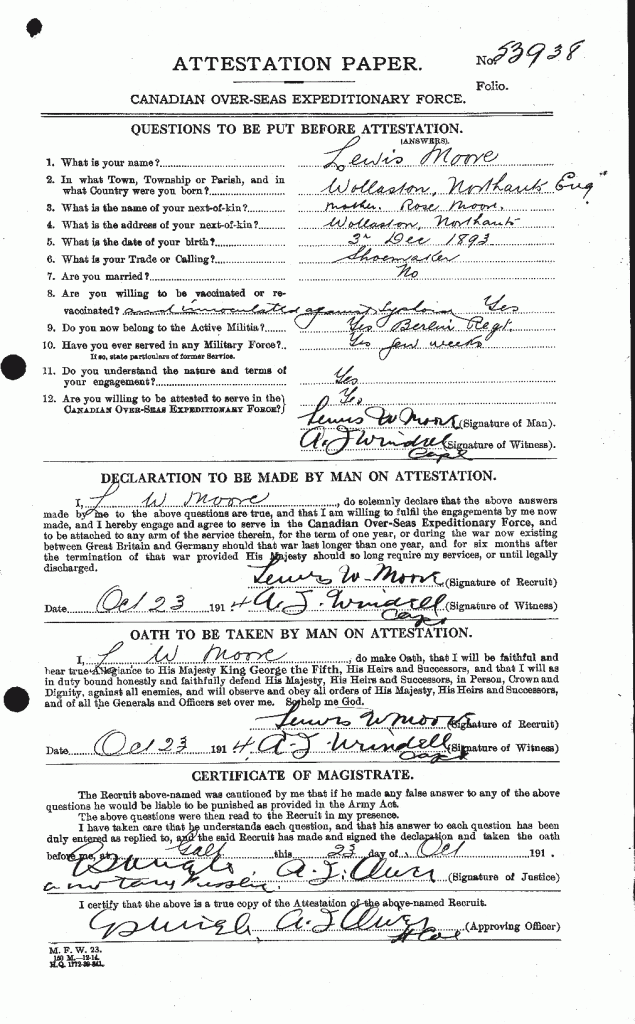 ATTESTATION PAPER.
No. 53938
Folio.
CANADIAN OVER-SEAS EXPEDITIONARY FORCE.
QUESTIONS TO BE PUT BEFORE ATTESTATION.
(ANSWERS).
1. What is your name? Lewis Moore
2. In what Town, Township or Parish, and in
what Country were you born? Wollaston, Northants Eng
3. What is the name of your next-of-kin? mother. Rose Moore
4. What is the address of your next-of-kin? Wollaston, Northants
5. What is the date of your birth? 3rd Dec 1893
6. What is your Trade or Calling? Shoemaker
7. Are you married? No
8. Are you willing to be vaccinated or re-
vaccinated? and inoculated against Yes
9. Do you now belong to the Active Militia? Yes Berlin Regt.
10. Have you ever served in any Military Force? Yes few weeks
If so, state particulars of former Service.
11. Do you understand the nature and terms of
your engagement? Yes
12. Are you willing to be attested to serve in the
CANADIAN OVER-SEAS EXPEDITIONARY FORCE? Yes
Lewis W Moore (Signature of Man).
A. J. Windell Capt (Signature of Witness).
DECLARATION TO BE MADE BY MAN ON ATTESTATION.
I, L W Moore, do solemnly declare that the above answers
made by me to the above questions are true, and that I am willing to fulfil the engagements by me now
made, and I hereby engage and agree to serve in the Canadian Over-Seas Expeditionary Force, and
to be attached to any arm of the service therein, for the term of one year, or during the war now existing
between Great Britain and Germany should that war last longer than one year, and for six months after
the termination of that war provided His Majesty should so long require my services, or until legally
discharged.
Lewis W Moore (Signature of Recruit)
Date Oct 23 1914 A. J. Windell Capt (Signature of Witness)
OATH TO BE TAKEN BY MAN ON ATTESTATION.
I, L W Moore, do make Oath, that I will be faithful and
bear true Allegiance to His Majesty King George the Fifth, His Heirs and Successors, and that I will as
in duty bound honestly and faithfully defend His Majesty, His Heirs and Successors, in Person, Crown and
Dignity, against all enemies, and will observe and obey all orders of His Majesty, His Heirs and Successors,
and of all the Generals and Officers set over me. So help me God.
Lewis W Moore (Signature of Recruit)
Date Oct 23 1914 A. J. Windell Capt (Signature of Witness)
CERTIFICATE OF MAGISTRATE.
The Recruit above-named was cautioned by me that if he made any false answer to any of the above
questions he would be liable to be punished as provided in the Army Act.
The above questions were then read to the Recruit in my presence.
I have taken care that he understands each question, and that his answer to each question has been
duly entered as replied to, and the said Recruit has made and signed the declaration and taken the oath
before me, at Galt this 23 day of Oct 191 .
A. J. (Signature of Justice)
a notary
I certify that the above is a true copy of the Attestation of the above-named Recruit.
A. J. (Approving Officer)
M. F. W. 23.
150 M.—12-14.
H.Q. 1772-39-841.